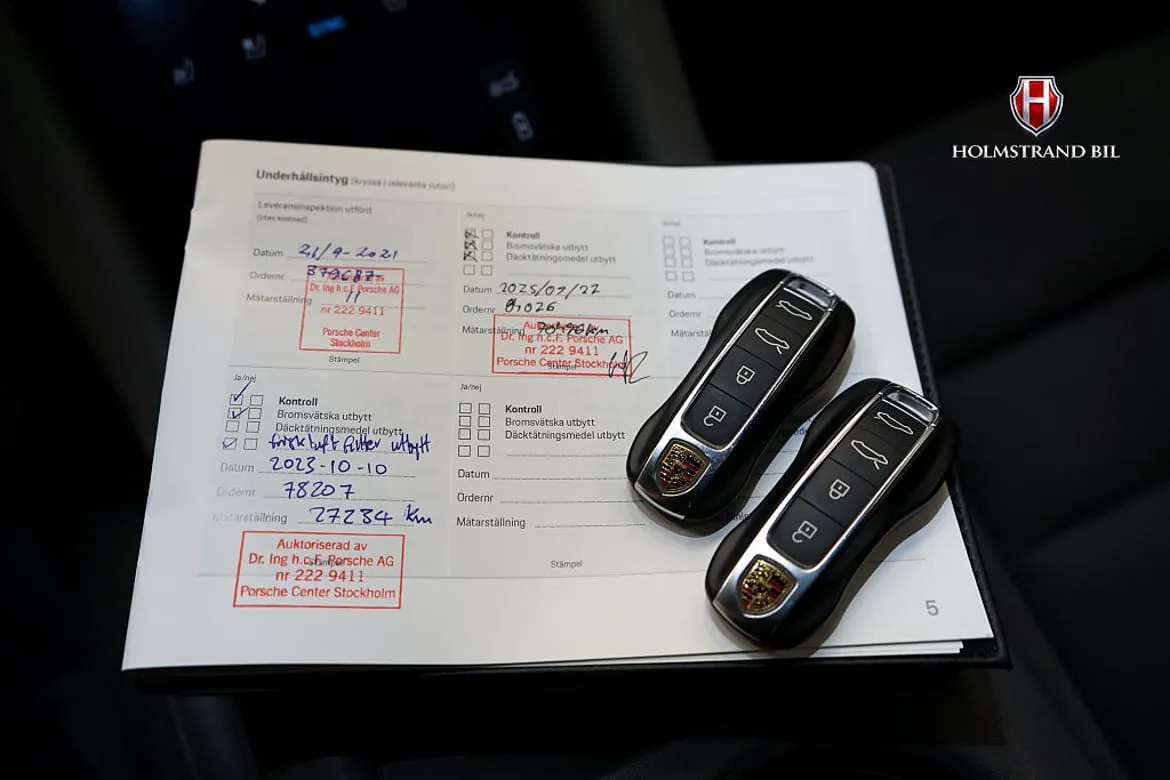 SYNC
HOLMSTRAND BIL
Underhållsintyg (kryssa i relevanta rutor!)
Leveransinspektion utförd
(utan kostnad)
Datum 21/9-2021
Ordernr 379687
Mätarställning 11
Dr. Ing h.c.F. Porsche AG
nr 222 9411
Porsche Center
Stockholm
Stämpel
Ja/nej
Kontroll
Bromsvätska utbytt
Däcktätningsmedel utbytt
Datum
Ordernr
Mätarställning
Auktoriserad av
Dr. Ing h.c.F. Porsche AG
nr 222 9411
Porsche Center Stockholm
Stämpel
Ja/nej
Kontroll
Bromsvätska utbytt
Däcktätningsmedel utbytt
Datum
Ordernr
Ja/nej
Kontroll
Bromsvätska utbytt
Däcktätningsmedel utbytt
friskluft filter utbytt
Datum 2023-10-10
Ordernr 78207
Mätarställning 27234 km
Auktoriserad av
Dr. Ing h.c.F. Porsche AG
nr 222 9411
Porsche Center Stockholm
Ja/nej
Kontroll
Bromsvätska utbytt
Däcktätningsmedel utbytt
Datum
Ordernr
Mätarställning
Stämpel
5